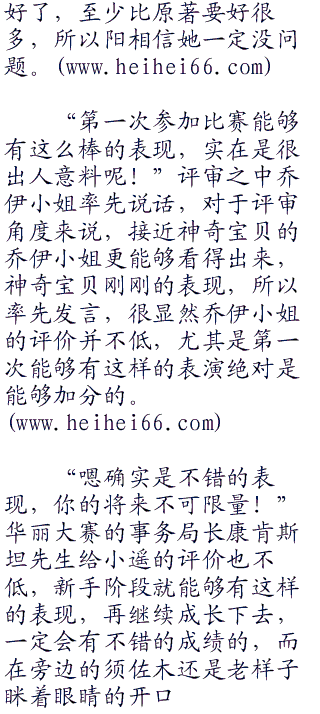 好了，至少比原著要好很
多，所以阳相信她一定没问
题。(www.heihei66.com)
“第一次参加比赛能够
有这么棒的表现，实在是很
出人意料呢！”评审之中乔
伊小姐率先说话，对于评审
角度来说，接近神奇宝贝的
乔伊小姐更能够看得出来，
神奇宝贝刚刚的表现，所以
率先发言，很显然乔伊小姐
的评价并不低，尤其是第一
次能够有这样的表演绝对是
能够加分的。
(www.heihei66.com)
“嗯确实是不错的表
现，你的将来不可限量！”
华丽大赛的事务局长康肯斯
坦先生给小遥的评价也不
低，新手阶段就能够有这样
的表现，再继续成长下去，
一定会有不错的成绩的，而
在旁边的须佐木还是老样子
眯着眼睛的开口